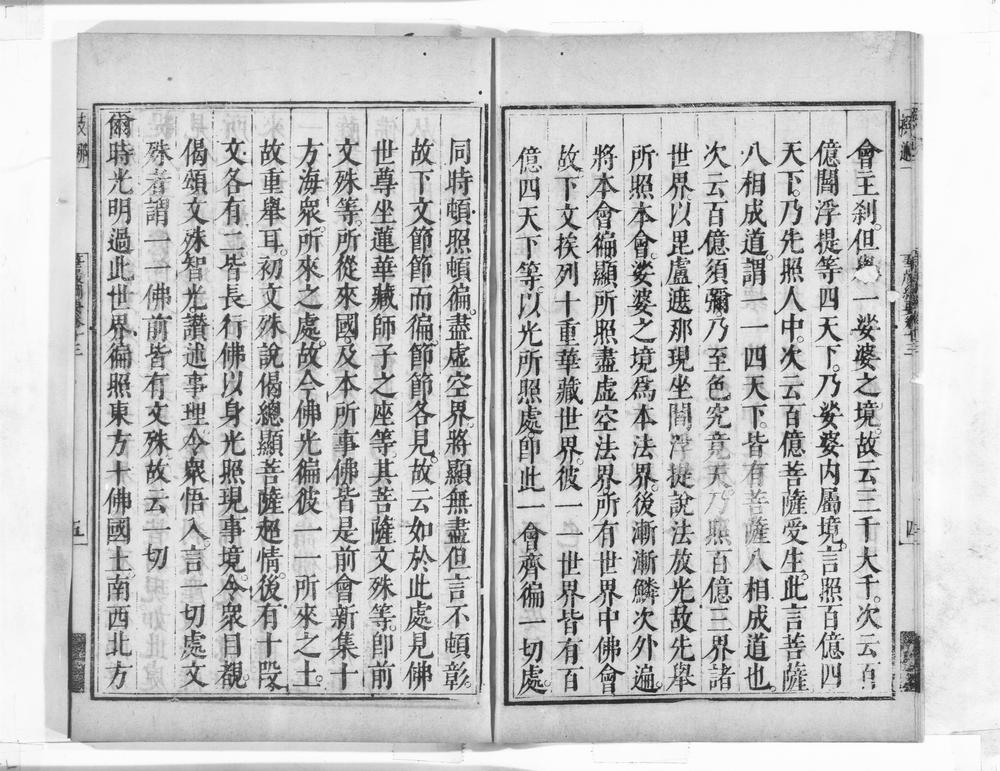 會主刹但與一娑婆之境故云三千大千次云百
億閻浮提等四天下乃娑婆內屬境言照百億四
天下乃先照人中次云百億菩薩受生此言菩薩
八相成道謂一一四天下皆有菩薩八相成道也
次云百億須彌乃至色究竟天乃照百億三界諸
世界以毘盧遮那現坐閻浮提說法放光故先舉
所照本會娑婆之境爲本法界後漸漸鱗次外遍
將本會徧顯所照盡虛空法界所有世界中佛會
故下文挨列十重華藏世界彼一一世界皆有百
億四天下等以光所照處卽此一會齊徧一切處
同時頓照頓徧盡虛空界將顯無盡但言不頓彰
故下文節節而徧節節各見故云如於此處見佛
世尊坐蓮華藏師子之座等其菩薩文殊等卽前
文殊等所從來國及本所事佛皆是前會新集十
方海衆所來之處故今佛光徧彼一一所來之土
故重舉耳初文殊說偈總顯菩薩超情後有十段
文各有二皆長行佛以身光照現事境令衆目覩
偈頌文殊智光讚述事理令衆悟入言一切處文
殊者謂一一佛前皆有文殊故云一切
爾時光明過此世界徧照東方十佛國土南西北方
五
四